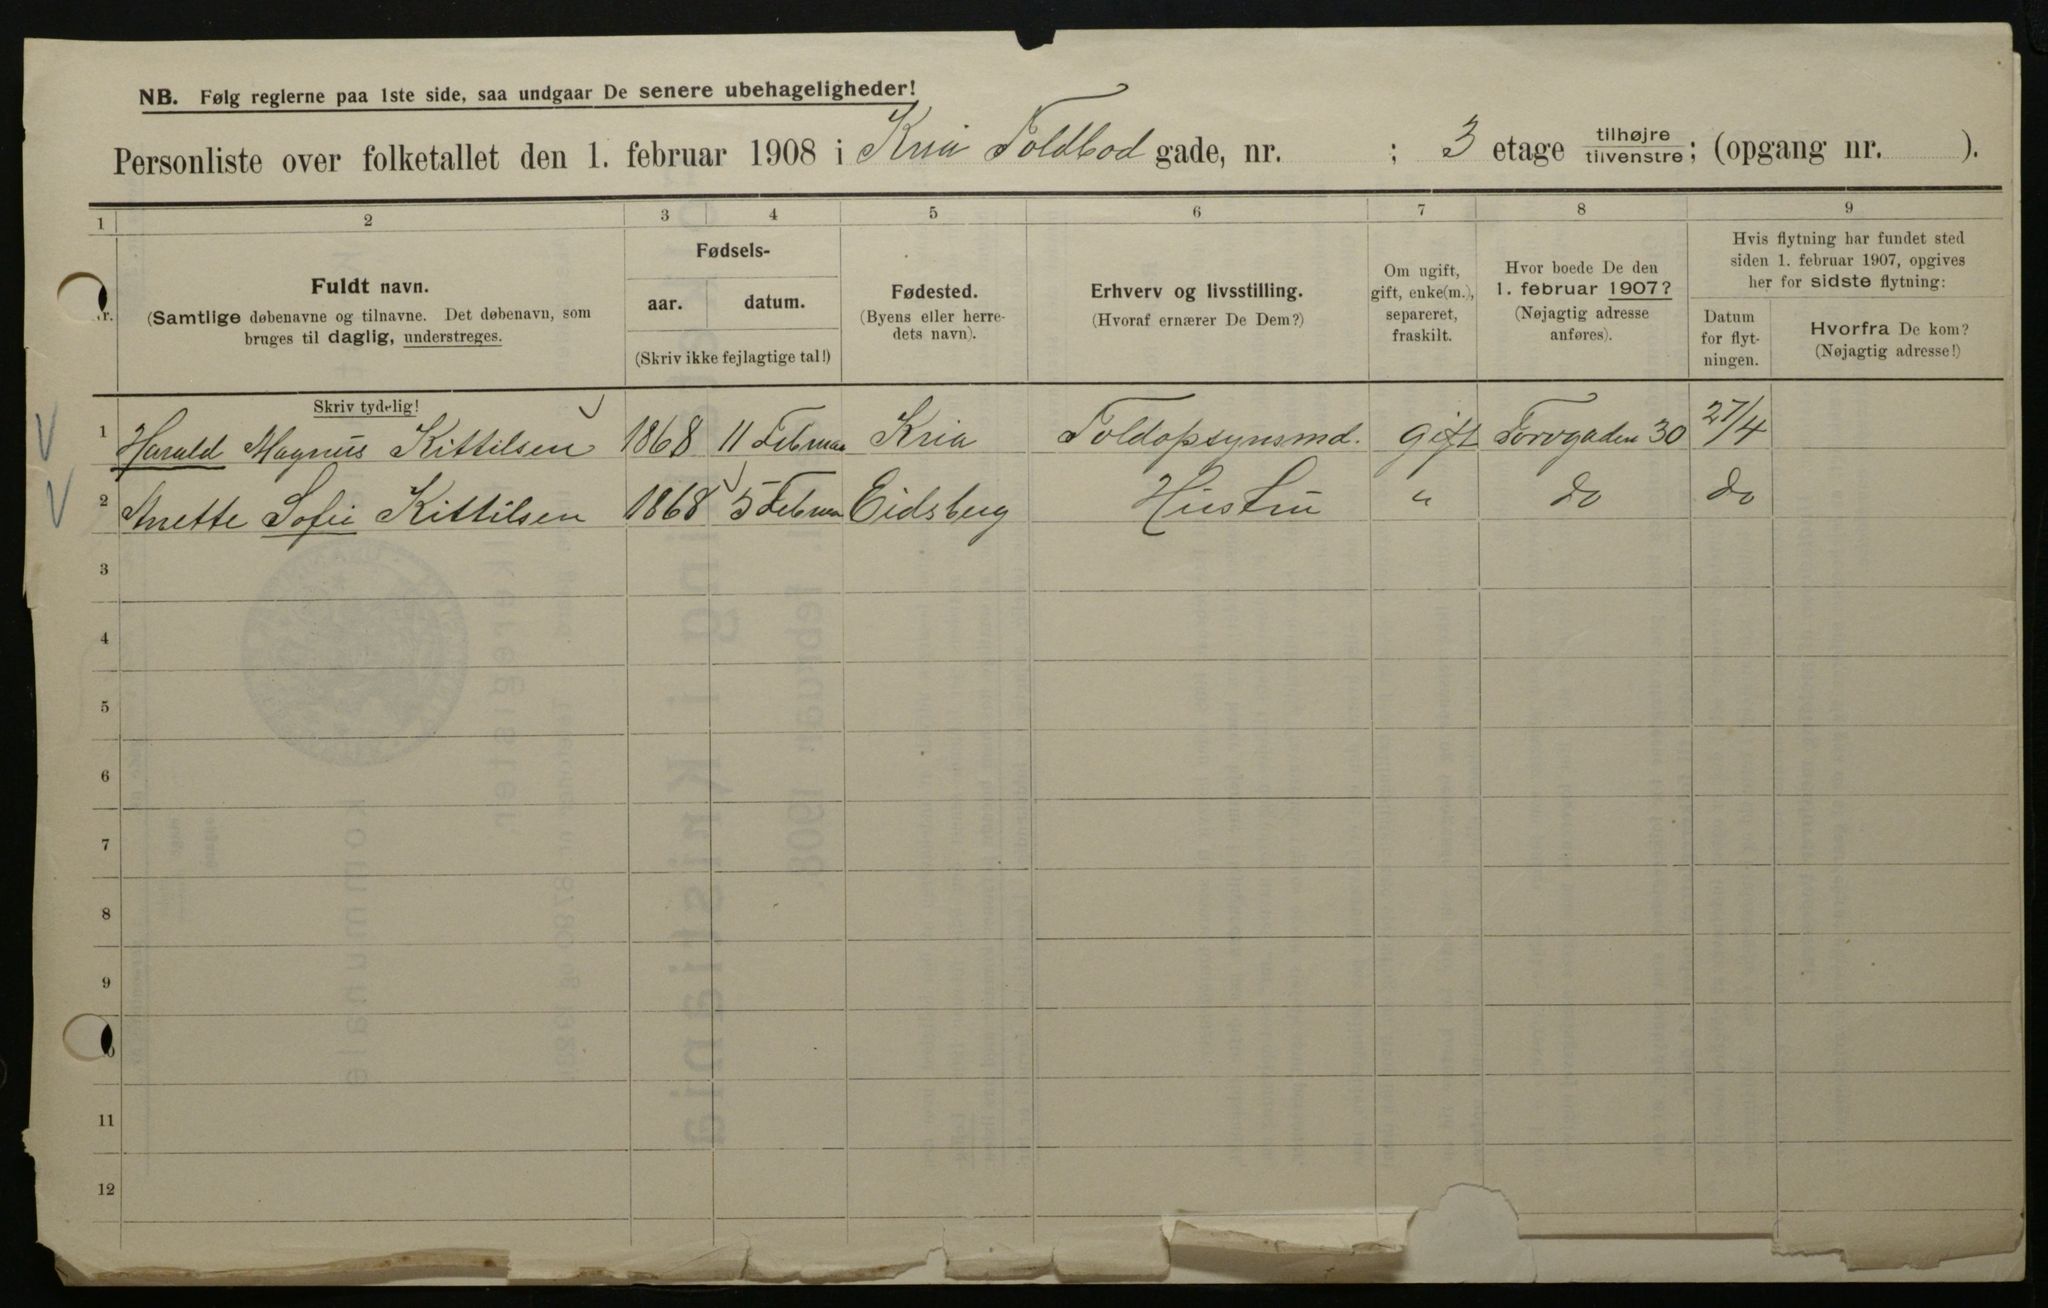 NB. Følg reglerne paa 1ste side, saa undgaar De senere ubehageligheder!
Personliste over folketallet den 1. februar 1908 i Kria Toldbod gade, nr. ; 3 etage tilhøjre tilvenstre; (opgang nr. ).
1 2 3 4 5 6 7 8 9
Fuldt navn.
(Samtlige døbenavne og tilnavne. Det døbenavn, som
bruges til daglig, understreges.
Skriv tydelig!
Fødsels-
aar. datum.
(Skriv ikke fejlagtige tal!)
Fødested.
(Byens eller herre-
dets navn).
Erhverv og livsstilling.
(Hvoraf ernærer De Dem?)
Om ugift,
gift, enke(m.),
separeret,
fraskilt.
Hvor boede De den
1. februar 1907?
(Nøjagtig adresse
anføres).
Hvis flytning har fundet sted
siden 1. februar 1907, opgives
her for sidste flytning:
Datum
for flyt-
ningen.
Hvorfra De kom?
(Nøjagtig adresse!)
1 Harald Magnus Kittilsen 1868 11 Februar Kria Toldopsynsmd. gift Torvgaden 30 27/4
2 Anette Sofie Kittilsen 1868 5 Februar Eidsberg Hustru " do do
3
4
5
6
7
8
9
11
12